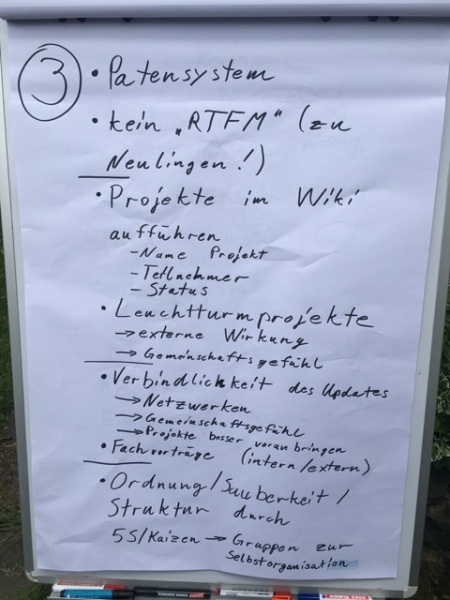 3
• Patensystem
• kein „RTFM" (zu
Neulingen!)
• Projekte im Wiki
aufführen
- Name Projekt
- Teilnehmer
- Status
• Leuchtturmprojekte
→ externe Wirkung
→ Gemeinschaftsgefühl
• Verbindlichkeit des Updates
→ Netzwerken
→ Gemeinschaftsgefühl
→ Projekte besser voran bringen
• Fachvorträge (intern/extern)
• Ordnung/Sauberkeit/
Struktur durch
5S/Kaizen → Gruppen zur
Selbstorganisation